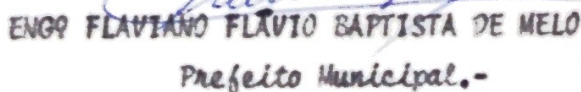 ENGº FLAVIANO FLÁVIO BAPTISTA DE MELO
Prefeito Municipal.-